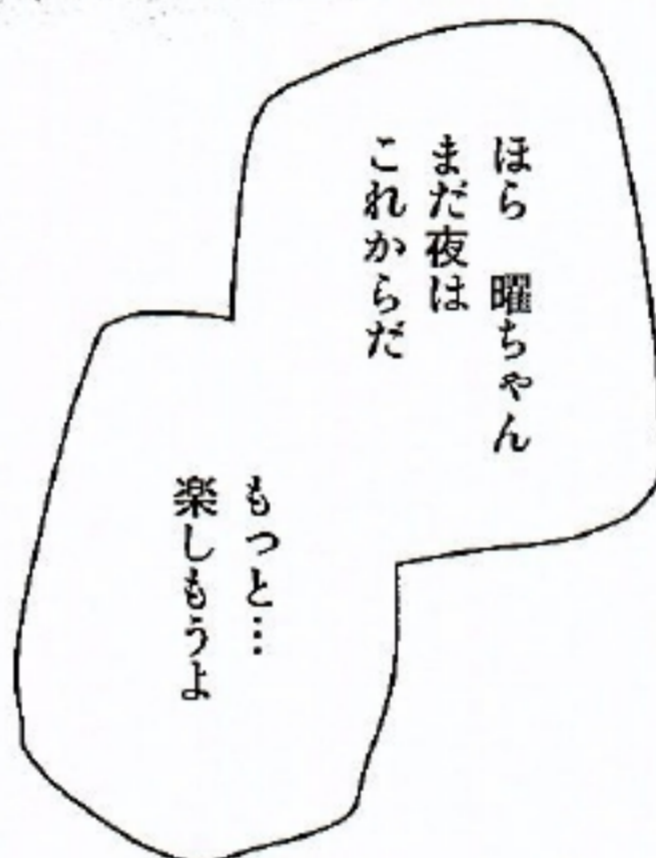 ほら　曜ちゃん
まだ夜は
これからだ
もっと…
楽しもうよ